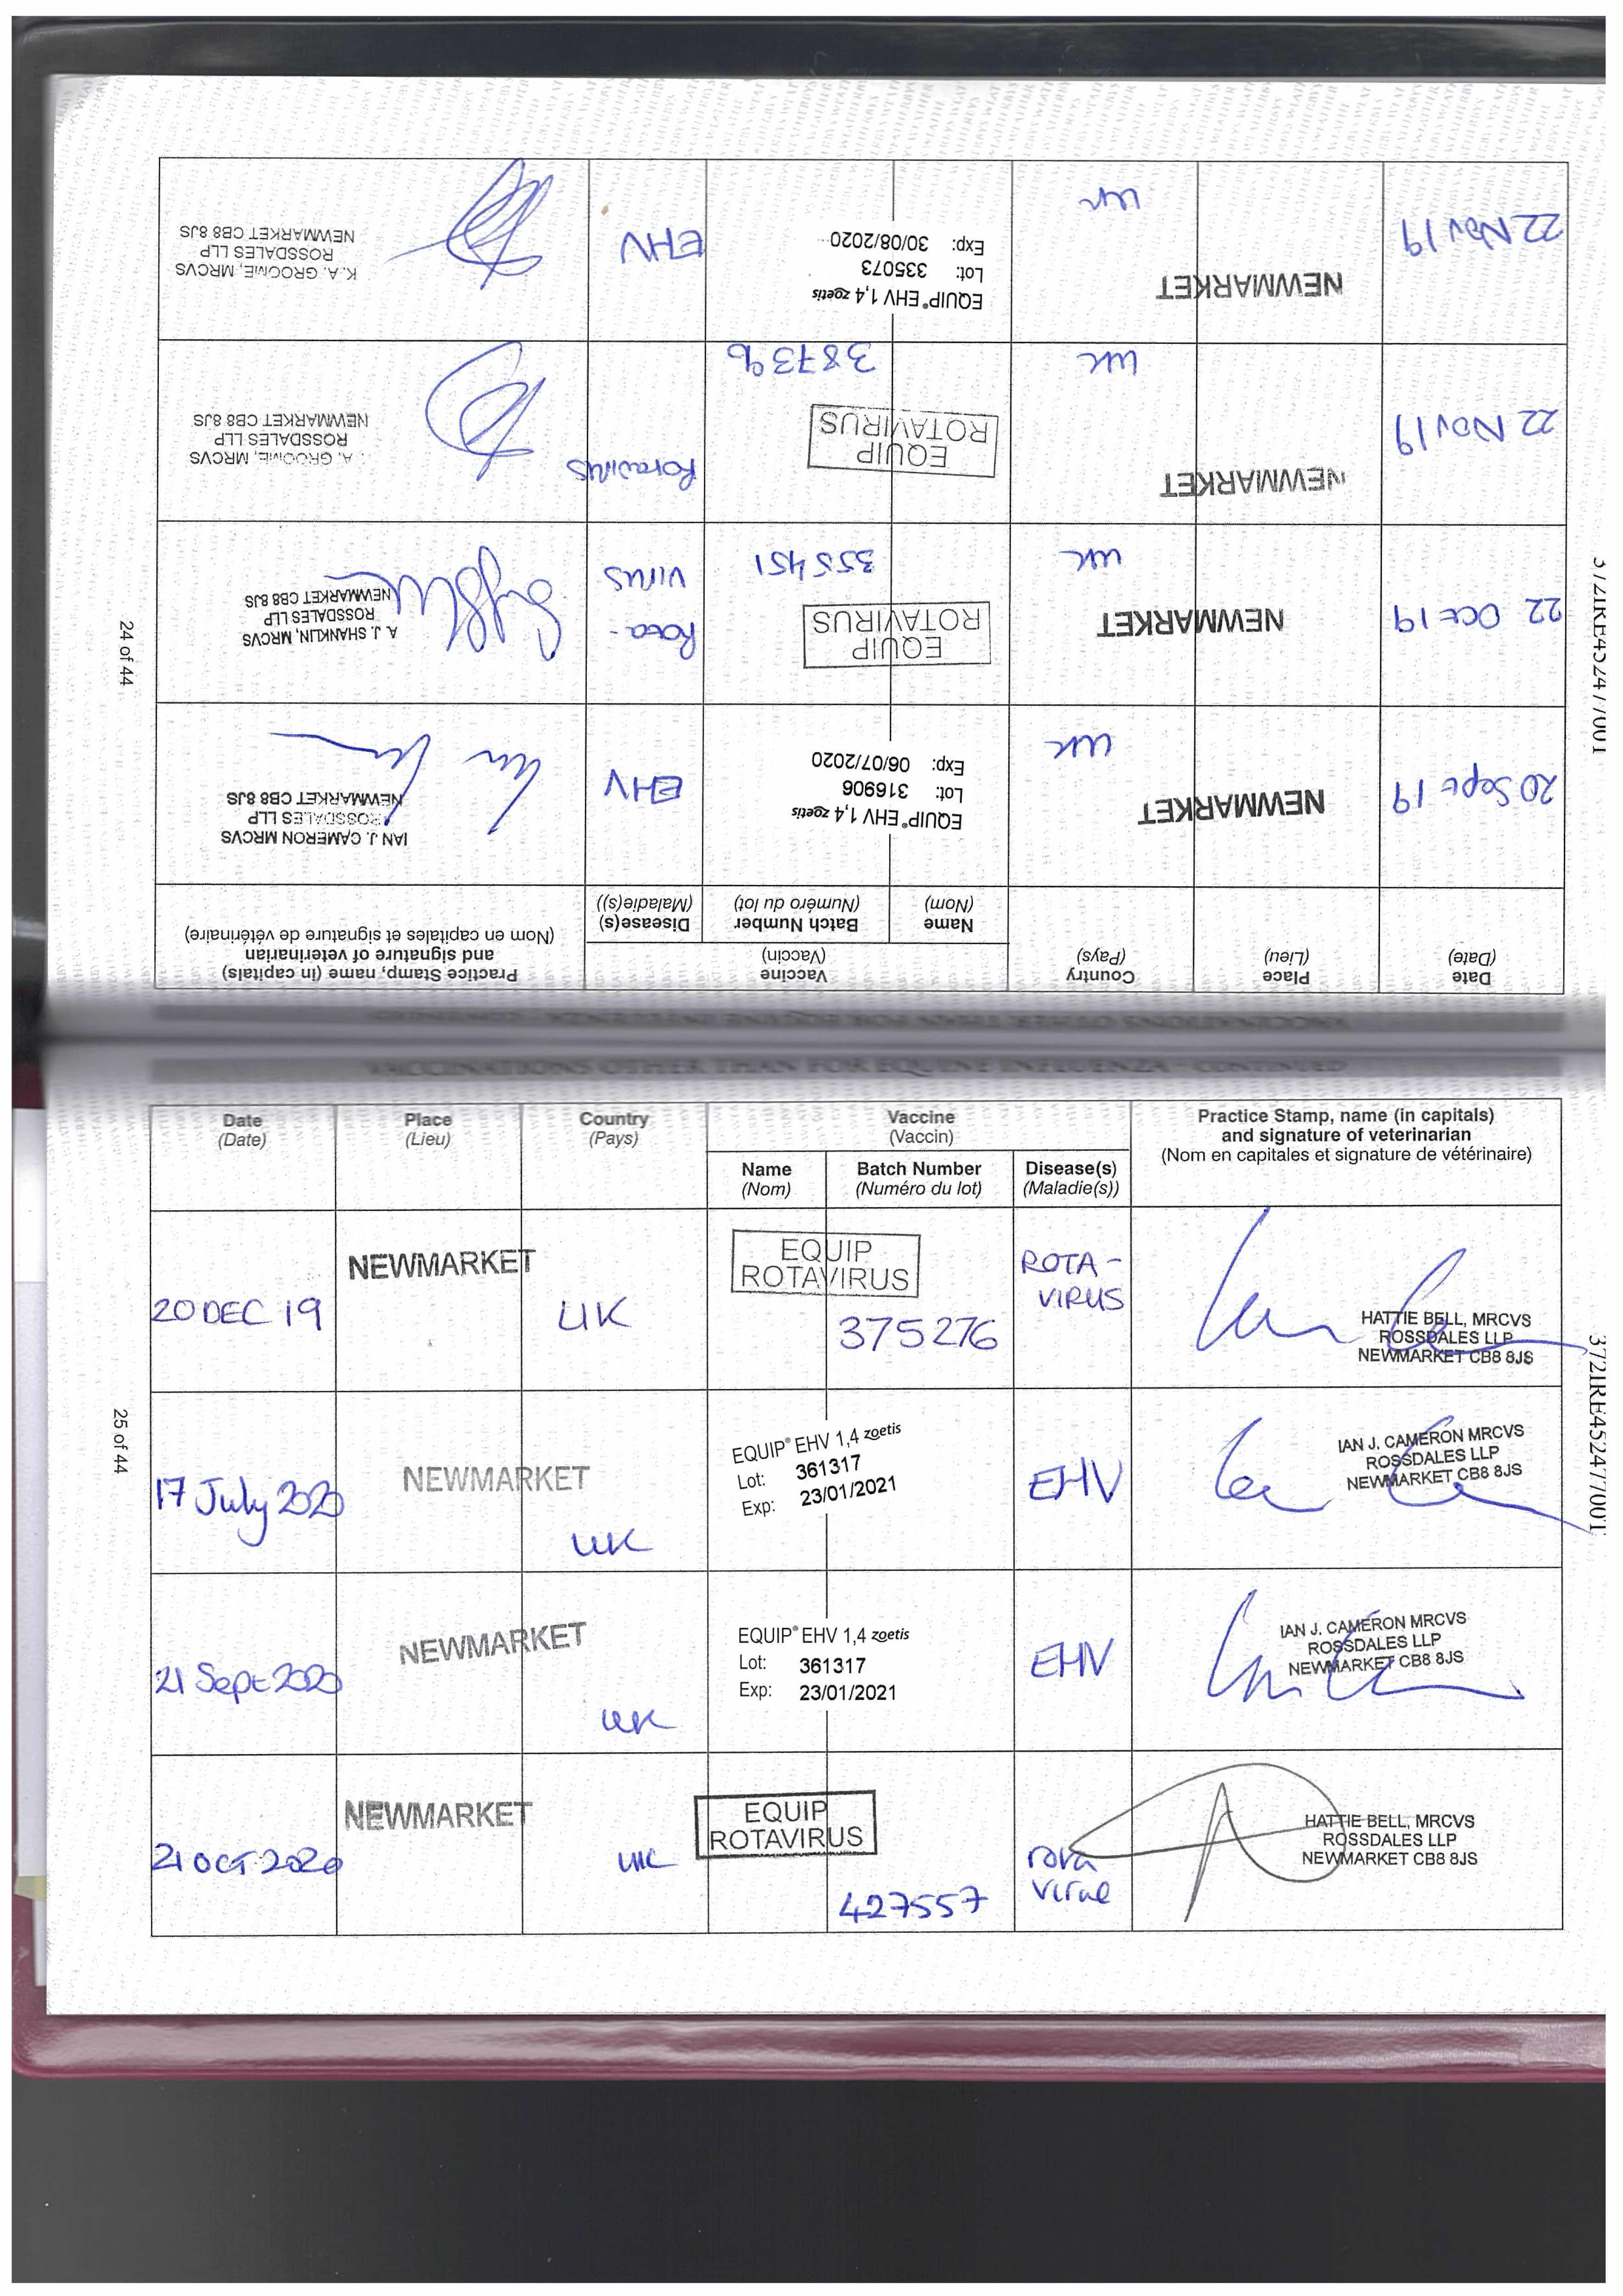 Date
(Date)
Place
(Lieu)
Country
(Pays)
Vaccine
(Vaccin)
Name
(Nom)
Batch Number
(Numéro du lot)
Disease(s)
(Maladie(s))
Practice Stamp, name (in capitals)
and signature of veterinarian
(Nom en capitales et signature de vétérinaire)
20 Sept 19
NEWMARKET
UK
EQUIP® EHV 1,4 zoetis
Lot: 316906
Exp: 06/07/2020
EHV
IAN J. CAMERON MRCVS
ROSSDALES LLP
NEWMARKET CB8 8JS
22 Oct 19
NEWMARKET
UK
EQUIP
ROTAVIRUS
355451
Rota-
virus
A. J. SHANKLIN, MRCVS
ROSSDALES LLP
NEWMARKET CB8 8JS
22 Nov 19
NEWMARKET
UK
EQUIP
ROTAVIRUS
Rotavirus
A. GROOME, MRCVS
ROSSDALES LLP
NEWMARKET CB8 8JS
22 Nov 19
NEWMARKET
UK
EQUIP® EHV 1,4 zoetis
Lot: 335073
Exp: 30/08/2020
EHV
K. A. GROOME, MRCVS
ROSSDALES LLP
NEWMARKET CB8 8JS
24 of 44
VACCINATIONS OTHER THAN FOR EQUINE INFLUENZA - CONTINUED
Date
(Date)
Place
(Lieu)
Country
(Pays)
Vaccine
(Vaccin)
Name
(Nom)
Batch Number
(Numéro du lot)
Disease(s)
(Maladie(s))
Practice Stamp, name (in capitals)
and signature of veterinarian
(Nom en capitales et signature de vétérinaire)
20 DEC 19
NEWMARKET
UK
EQUIP
ROTAVIRUS
375276
ROTA-
VIRUS
HATTIE BELL, MRCVS
ROSSDALES LLP
NEWMARKET CB8 8JS
17 July 2020
NEWMARKET
UK
EQUIP® EHV 1,4 zoetis
Lot: 361317
Exp: 23/01/2021
EHV
IAN J. CAMERON MRCVS
ROSSDALES LLP
NEWMARKET CB8 8JS
21 Sept 2020
NEWMARKET
UK
EQUIP® EHV 1,4 zoetis
Lot: 361317
Exp: 23/01/2021
EHV
IAN J. CAMERON MRCVS
ROSSDALES LLP
NEWMARKET CB8 8JS
21 OCT 2020
NEWMARKET
UK
EQUIP
ROTAVIRUS
427557
rota
HATTIE BELL, MRCVS
ROSSDALES LLP
NEWMARKET CB8 8JS
25 of 44